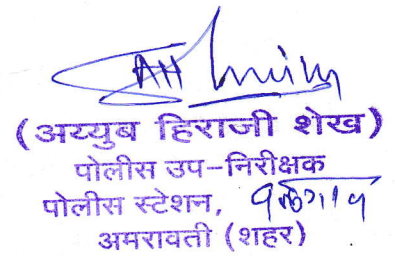 (अय्युब हिराजी शेख)
पोलीस उप-निरीक्षक
पोलीस स्टेशन, वलगाव
अमरावती (शहर)